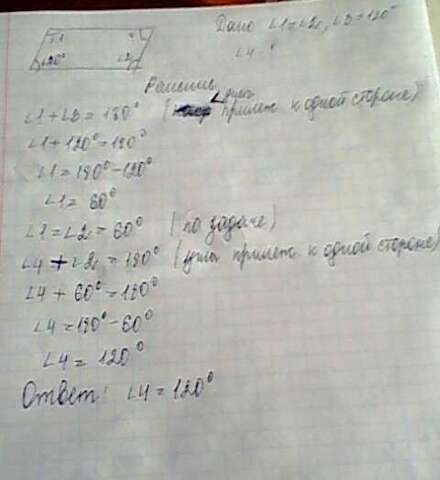 Дано ∠1=∠2, ∠3=120°
∠4-°
∠1
120°
∠2
Решение
∠1+∠3=180° (углы прилеж к одной стороне)
∠1+120°=180°
∠1=180°-120°
∠1= 60°
∠1=∠2=60° (по задаче)
∠4+∠2=180° (углы прилеж к одной стороне)
∠4+60°=180°
∠4=180°-60°
∠4= 120°
Ответ: ∠4=120°